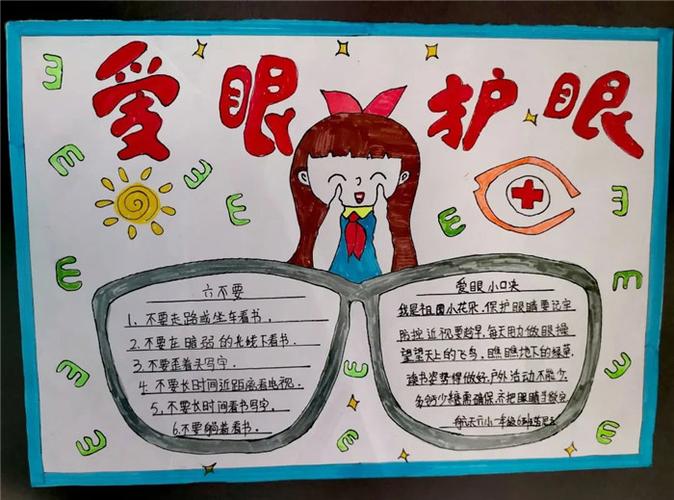 爱眼护眼
六不要
1、不要走路或坐车看书。
2、不要在暗弱的光线下看书。
3、不要歪着头写字。
4、不要长时间近距离看电视。
5、不要长时间看书写字。
6、不要躺着看书。
爱眼小口诀
我是祖国小花朵,保护眼睛要记牢
防控近视要趁早,每天用力做眼操
望望天上的飞鸟,瞧瞧地下的绿草,
读书姿势得做好,户外活动不能少,
多钙少糖需确保,齐把眼睛
六小二年级6班